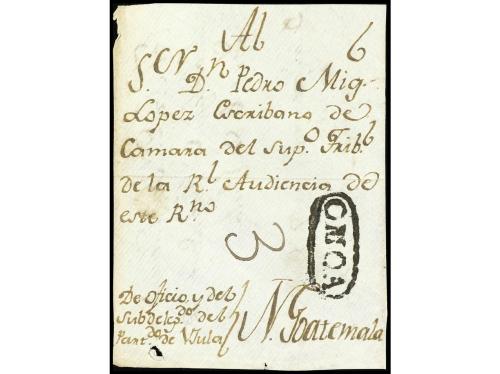 Al 6
S.or D.n Pedro Mig-
Lopez Escribano de
Camara del Sup.o Trib.l
de la R.l Audiencia de
este R.no
3
CHOA
De Oficio y del
Subdeleg.do del
Part.do de
N. Goatemala